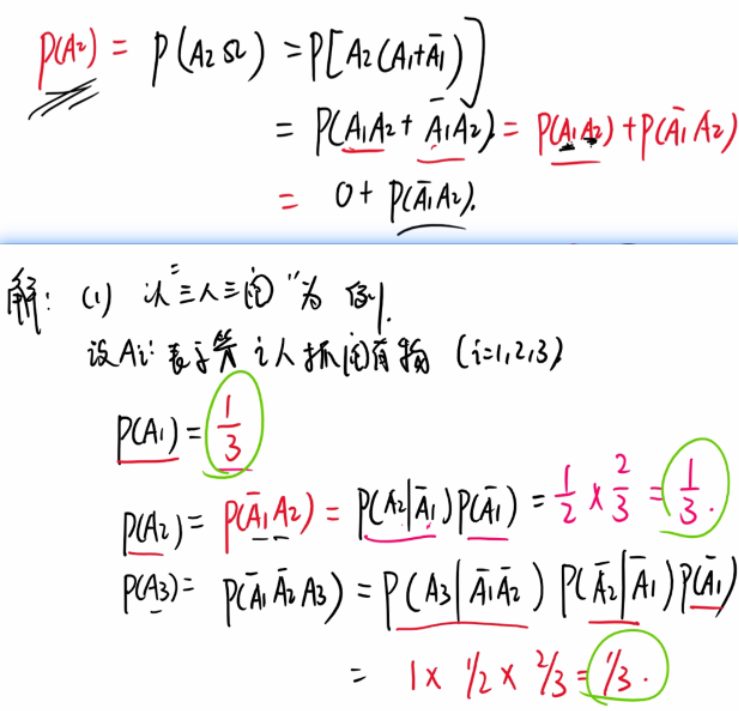 P(A₂) = P(A₂Ω) = P[A₂(A₁+Ā₁)]
= P(A₁A₂ + Ā₁A₂) = P(A₁A₂) + P(Ā₁A₂)
= 0 + P(Ā₁A₂).
解: (1) 以"三人三阄"为例.
设Aᵢ: 表示第i人抓阄有物 (i=1,2,3)
P(A₁) = 1/3
P(A₂) = P(Ā₁A₂) = P(A₂|Ā₁)P(Ā₁) = 1/2 × 2/3 = 1/3.
P(A₃) = P(Ā₁Ā₂A₃) = P(A₃|Ā₁Ā₂) P(Ā₂|Ā₁)P(Ā₁)
= 1 × 1/2 × 2/3 = 1/3.